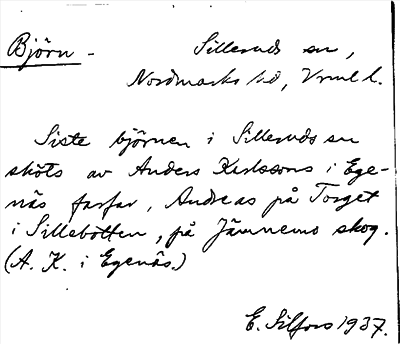 Björn - Silleruds sn,
Nordmarks hd, Vrml l.
Siste björnen i Silleruds sn
sköts av Anders Karlssons i Ege-
näs farfar, Andreas på Torget
i Sillebotten, på Jämnemo skog.
(A. K. i Egenäs.)
E. Silfors 1937.